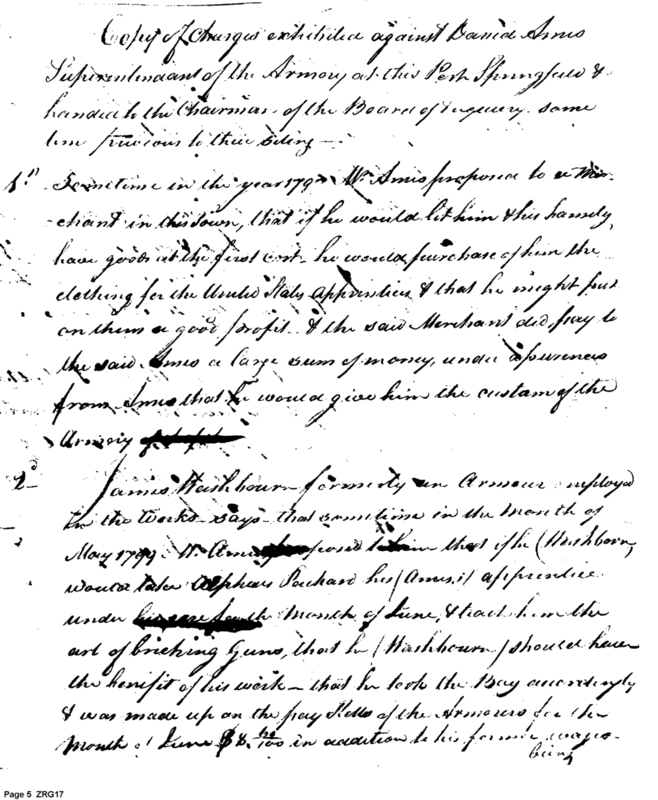 Copy of Charges exhibited against David Ames
Superintendant of the Armory at this Post Springfield &
handed to the Chairman of the Board of Inquiery some
time previous to their siting —
1st Sometime in the year 179 Mr Ames proposed to a Mer-
chant in this town, that if he would let him & his family
have goods at the first cost he would purchase of him the
clothing for the United States apprentices & that he might put
on them a good profit & the said Merchant did pay to
the said Ames a large sum of money, under assurences
from Ames that he would give him the custom of the
Armory
2d James Washbourn formerly an Armour employed
in the works says that sometime in the Month of
May 1799 Mr Ames proposed to him that if he (Washborn)
would take Alpheus Packard his (Ames's) apprentice
under Month of June, & teach him the
art of briching Guns, that he (Washbourn) should have
the benifit of his work — that he took the Boy accordingly
& was made up on the pay Rolls of the Armourers for the
Month of June $8. /100 in addition to his former wages
being
Page 5 ZRG17